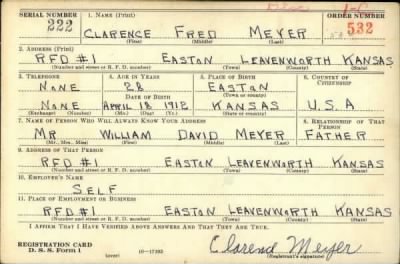 SERIAL NUMBER 1. NAME (Print) ORDER NUMBER
222 CLARENCE FRED MEYER 532
(First) (Middle) (Last)
2. ADDRESS (Print)
RFD #1 EASTON LEAVENWORTH KANSAS
(Number and street or R. F. D. number) (Town) (County) (State)
3. TELEPHONE 4. AGE IN YEARS 5. PLACE OF BIRTH 6. COUNTRY OF CITIZENSHIP
NONE 28 EASTON
DATE OF BIRTH (Town or county)
NONE APRIL 18 1912 KANSAS U.S.A
(Exchange) (Number) (Mo.) (Day) (Yr.) (State or country)
7. NAME OF PERSON WHO WILL ALWAYS KNOW YOUR ADDRESS 8. RELATIONSHIP OF THAT PERSON
MR WILLIAM DAVID MEYER FATHER
(Mr., Mrs., Miss) (First) (Middle) (Last)
9. ADDRESS OF THAT PERSON
RFD #1 EASTON LEAVENWORTH KANSAS
(Number and street or R. F. D. number) (Town) (County) (State)
10. EMPLOYER'S NAME
SELF
11. PLACE OF EMPLOYMENT OR BUSINESS
RFD #1 EASTON LEAVENWORTH KANSAS
(Number and street or R. F. D. number) (Town) (County) (State)
I AFFIRM THAT I HAVE VERIFIED ABOVE ANSWERS AND THAT THEY ARE TRUE.
REGISTRATION CARD
D. S. S. Form 1 (over) 16-17105 Clarence Meyer
(Registrant's signature)